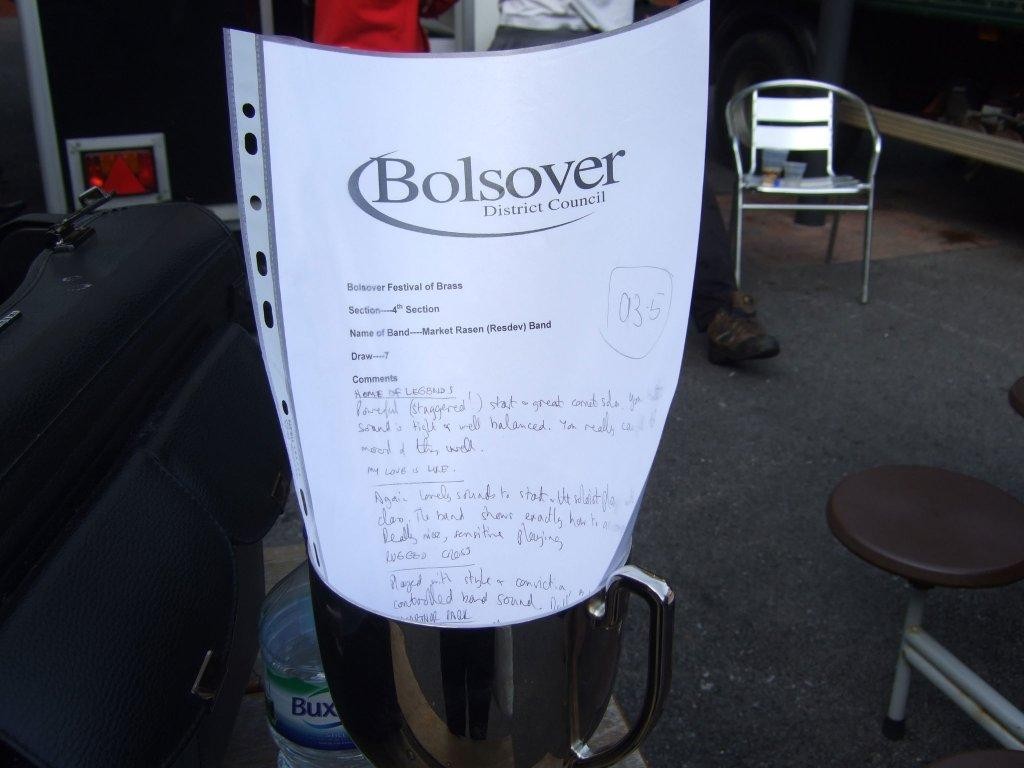 Bolsover
District Council
Bolsover Festival of Brass
Section----4th Section
Name of Band----Market Rasen (Resdev) Band
Draw----7
Comments
HOME OF LEGENDS
Powerful (staggered!) start & great cornet solo. You
sound is tight & well balanced. You really
mood of this well.
MY LOVE IS LIKE.
Again lovely sounds to start. the soloist
The band shows exactly how to
Really nice, sensitive playing
RUGGED CROSS
Played with style & conviction
controlled band sound.
PARK
Bux